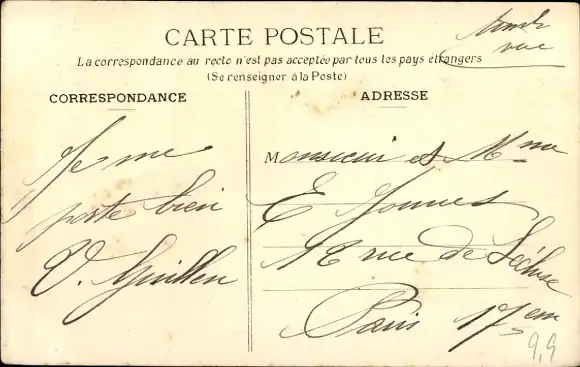 CARTE POSTALE
La correspondance au recto n'est pas acceptée par tous les pays étrangers
(Se renseigner à la Poste)
CORRESPONDANCE
ADRESSE
Je me
porte bien
V.
Monsieur et Mme
E
18 rue de Lécluse
Paris 17em
9,9